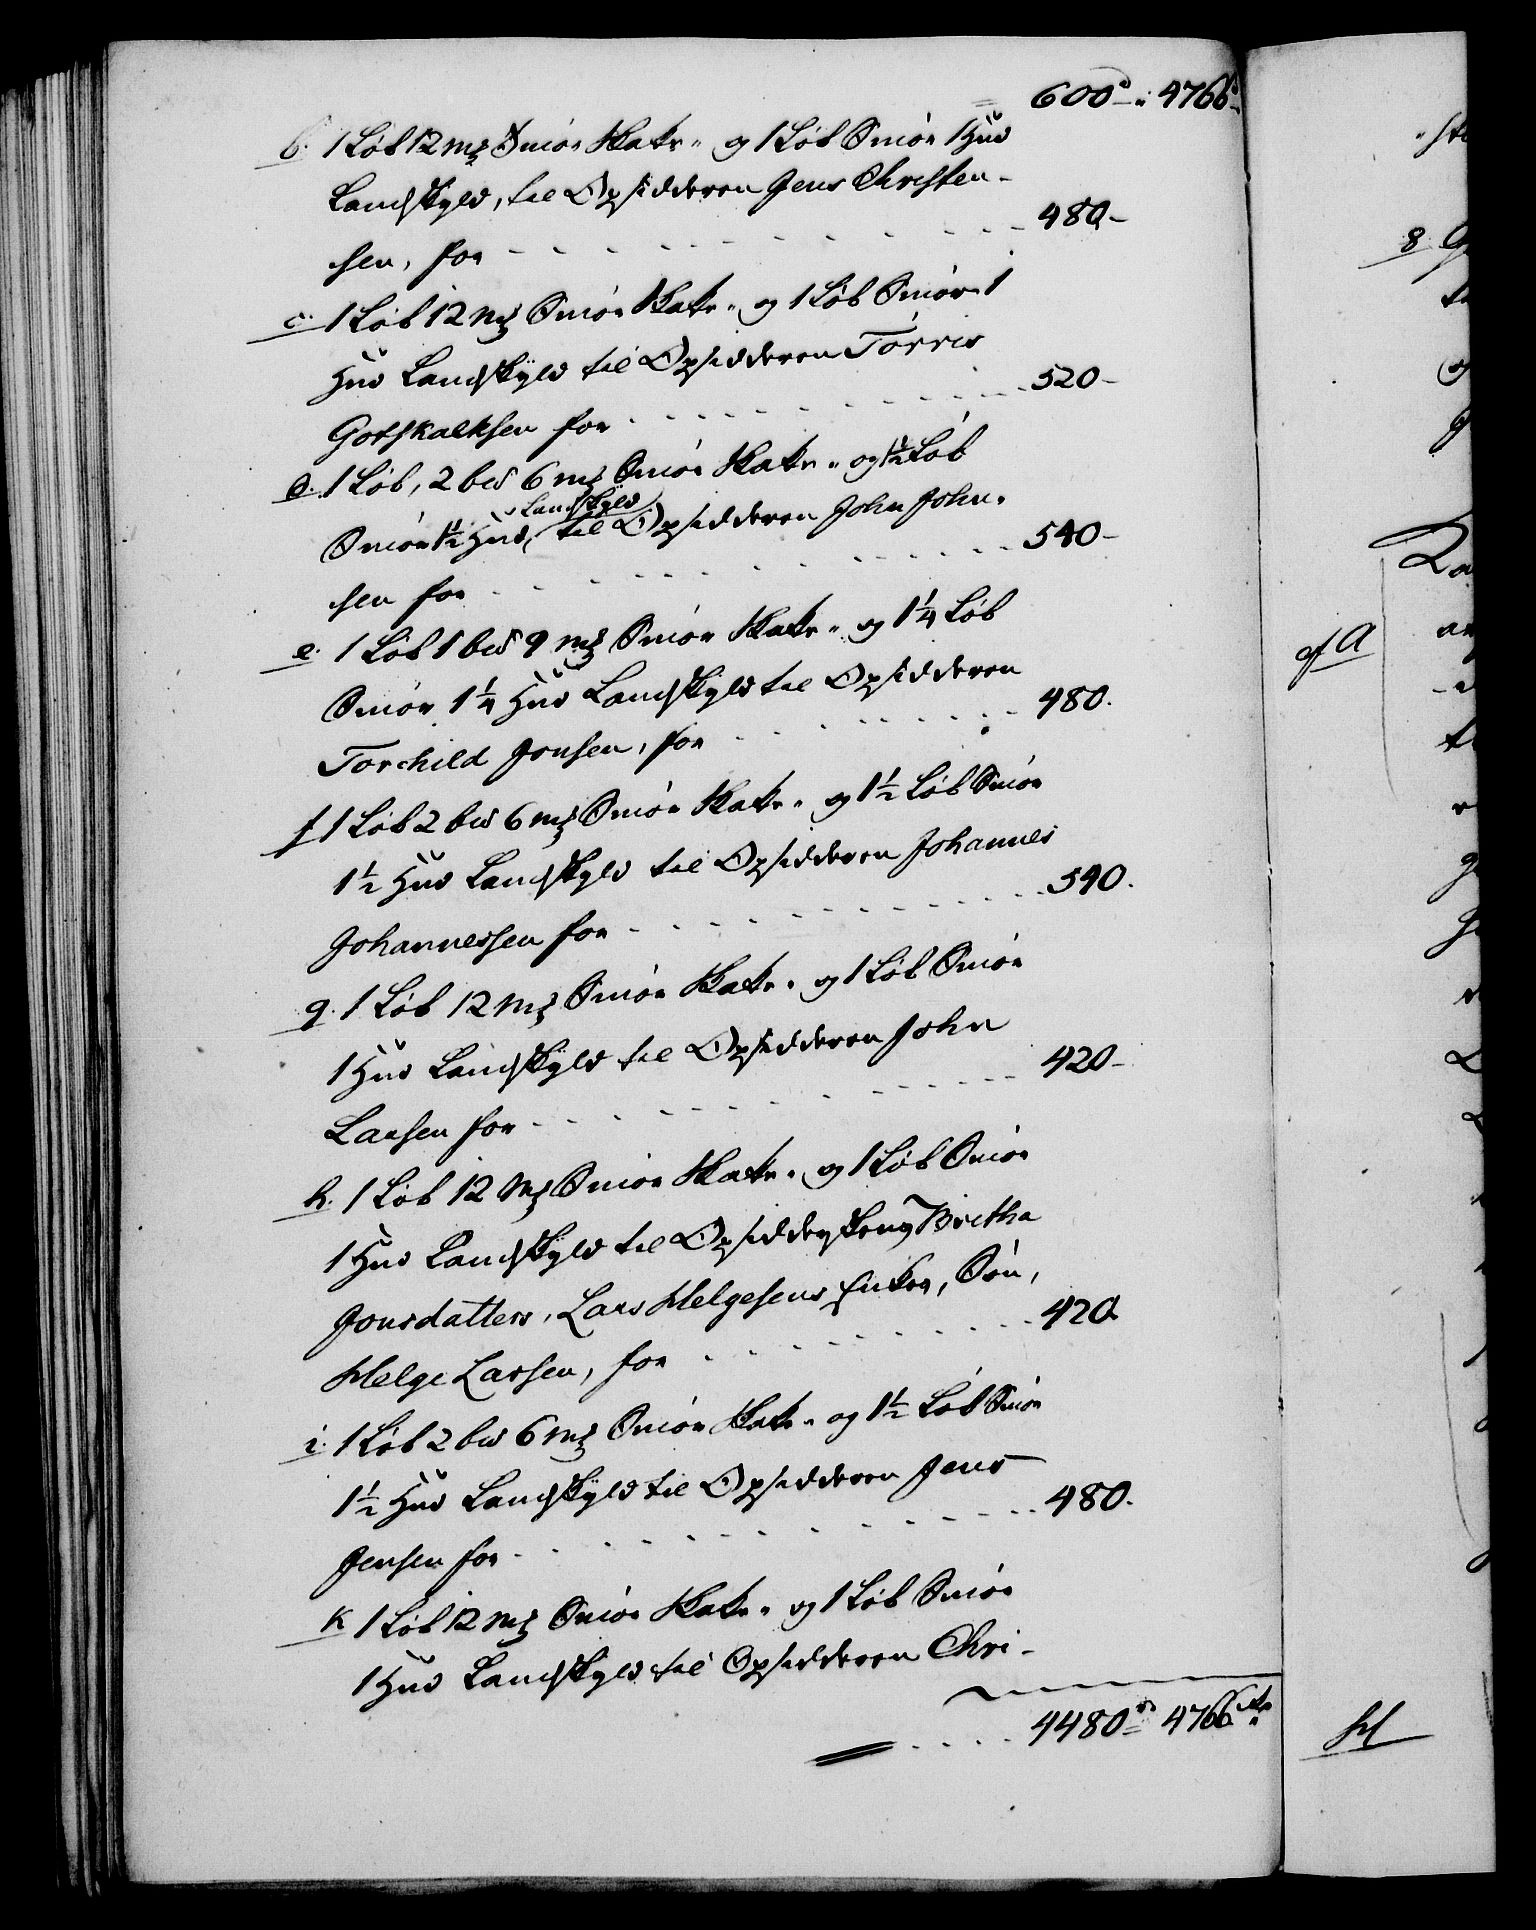 600 4766
b. 1 Løb 12 mß Smør Skatr. og 1 Løb Smør 1 Hud
Landskyld, til Opsidderen Jens Christen-
sen, for 480-
c. 1 Løb 12 mß Smør Skatr. og 1 Løb Smør 1
Hud Landskyld til Opsidderen Torris
Gotskalksen for 520-
d. 1 Løb, 2 bd 6 mß Smør Skatr. og 1½ Løb
Smør 1½ Hud, Landskyld til Opsidderen John John-
sen for 540-
e. 1 Løb 1 bd 9 mß Smør Skatr. og 1¼ Løb
Smør 1¼ Hud Landskyld til Opsidderen
Torchild Jonsen, for 480.
f 1 Løb 2 bd 6 mß Smør Skatr. og 1½ Løb Smør
1½ Hud Landskyld til Opsidderen Johannes
Johannessen for 540.
g. 1 Løb 12 mß Smør Skatr. og 1 Løb Smør
1 Hud Landskyld til Opsidderen John
Larsen for 420-
h. 1 Løb 12 mß Smør Skatr. og 1 Løb Smør
1 Hud Landskyld til Britha
Jonsdatters, Lars Helgesens Enkes, Søn,
Helge Larsen, for 420.
i. 1 Løb 2 bd 6 mß Smør Skatr. og 1½ Løb Smør
1½ Hud Landskyld til Opsidderen Jens
Jensen for 480.
k 1 Løb 12 mß Smør Skatr. og 1 Løb Smør
1 Hud Landskyld til Opsidderen Chri-
4480 4766